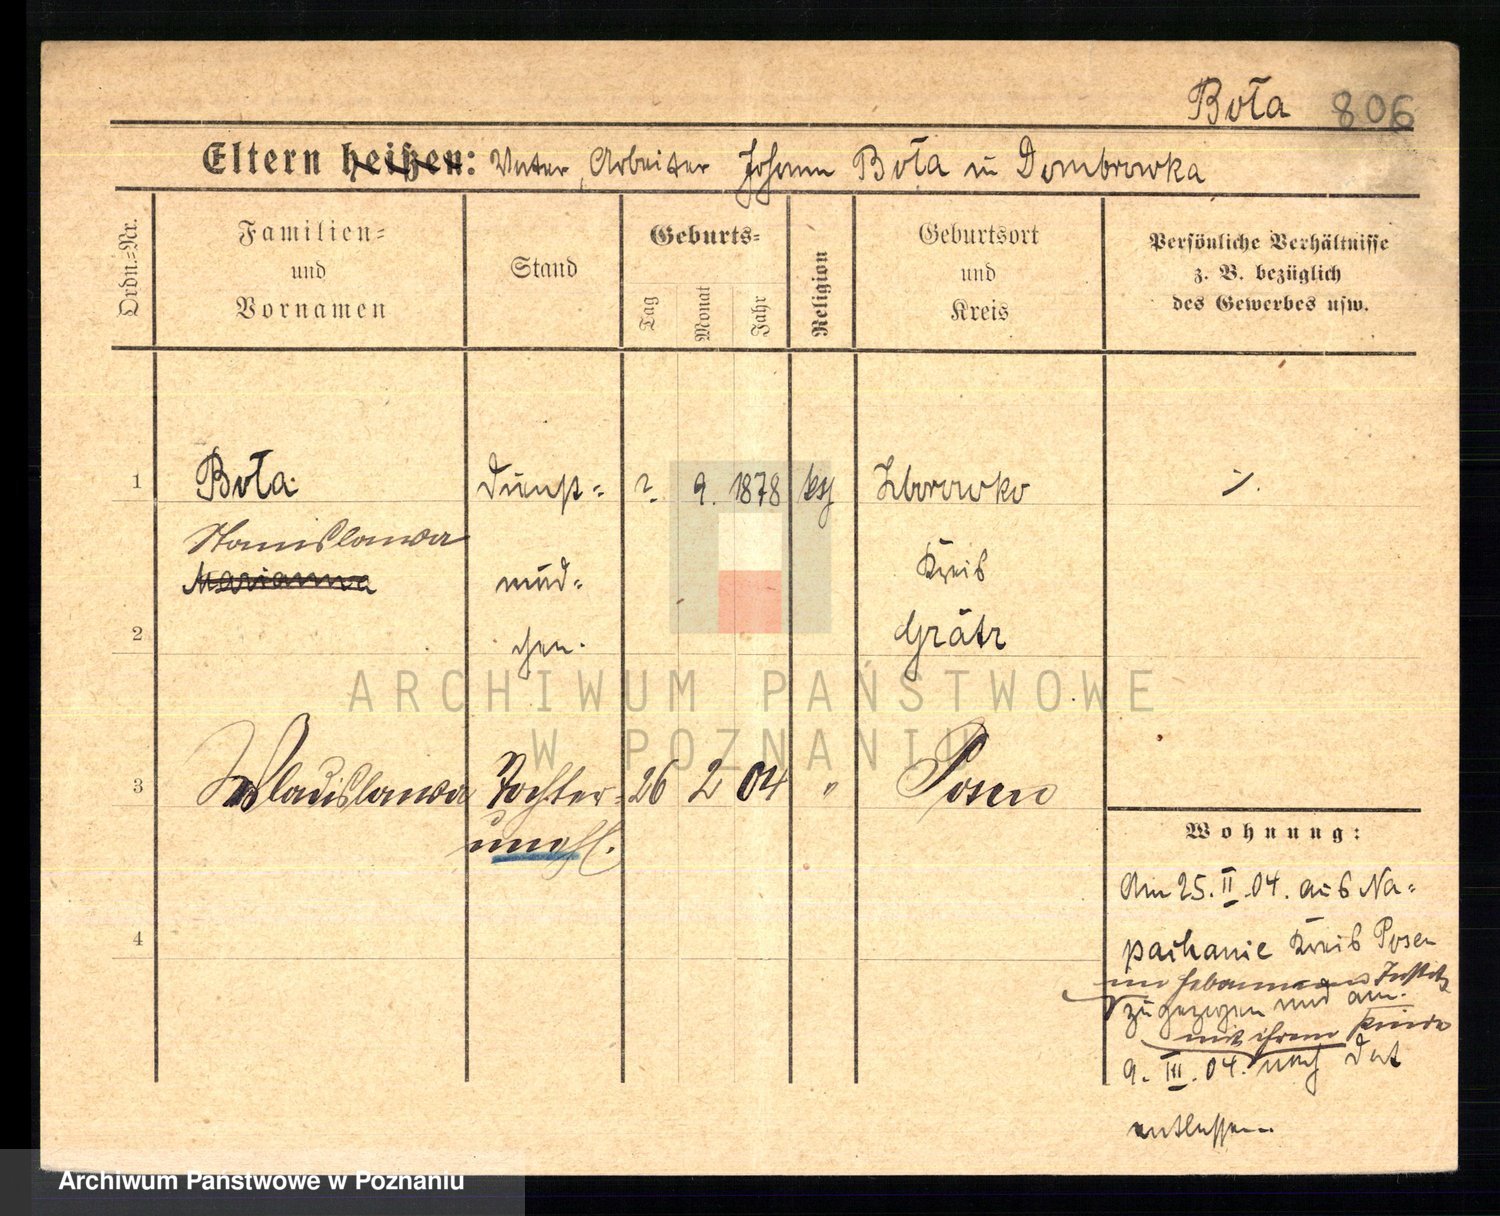 Bota 806
Eltern heißen: Vater, Arbeiter Johann Bota in Dombrowka
Ordn.-Nr.
Familien-
und
Vornamen
Stand
Geburts-
Tag
Monat
Jahr
Religion
Geburtsort
und
Kreis
Persönliche Verhältnisse
z. B. bezüglich
des Gewerbes usw.
1 Bota Dienst- ? 9. 1878 kth Zborowko ./.
Stanislawa
Marianna
mäd- Kreis
2 chen. Grätz
ARCHIWUM PAŃSTWOWE
W POZNANIU
3 Wladislawa Tochter- 26 2 04 " Posen
unehl.
Wohnung:
Am 25. II. 04. aus Na-
4 pachanie Kreis Posen
im Hebammen Institut
zugezogen und am
mit ihrem Kinde
9. III. 04. nach dort
entlassen.
Archiwum Państwowe w Poznaniu